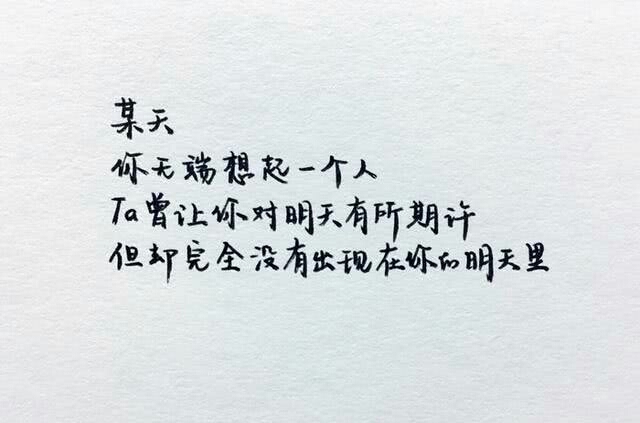 某天
你无端想起一个人
Ta曾让你对明天有所期许
但却完全没有出现在你的明天里